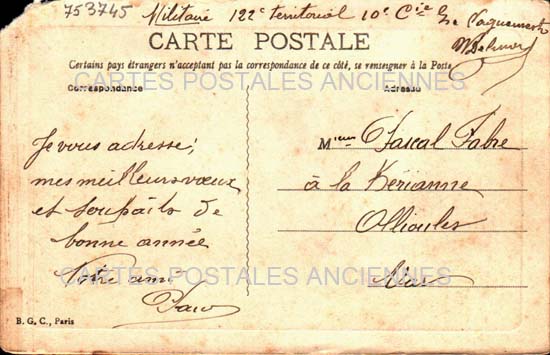 753745
Militaire 122e territorial 10e Cie
CARTE POSTALE
Certains pays étrangers n'acceptant pas la correspondance de ce côté, se renseigner à la Poste
CARTES POSTALES ANCIENNES
Correspondance
Adresse
Je vous adresse,
mes meilleurs vœux
et souhaits de
bonne année
Votre ami
Mieur Pascal Fabre
à la Kérianne
Ollioules
Var
CARTES POSTALES ANCIENNES
B. G. C., Paris